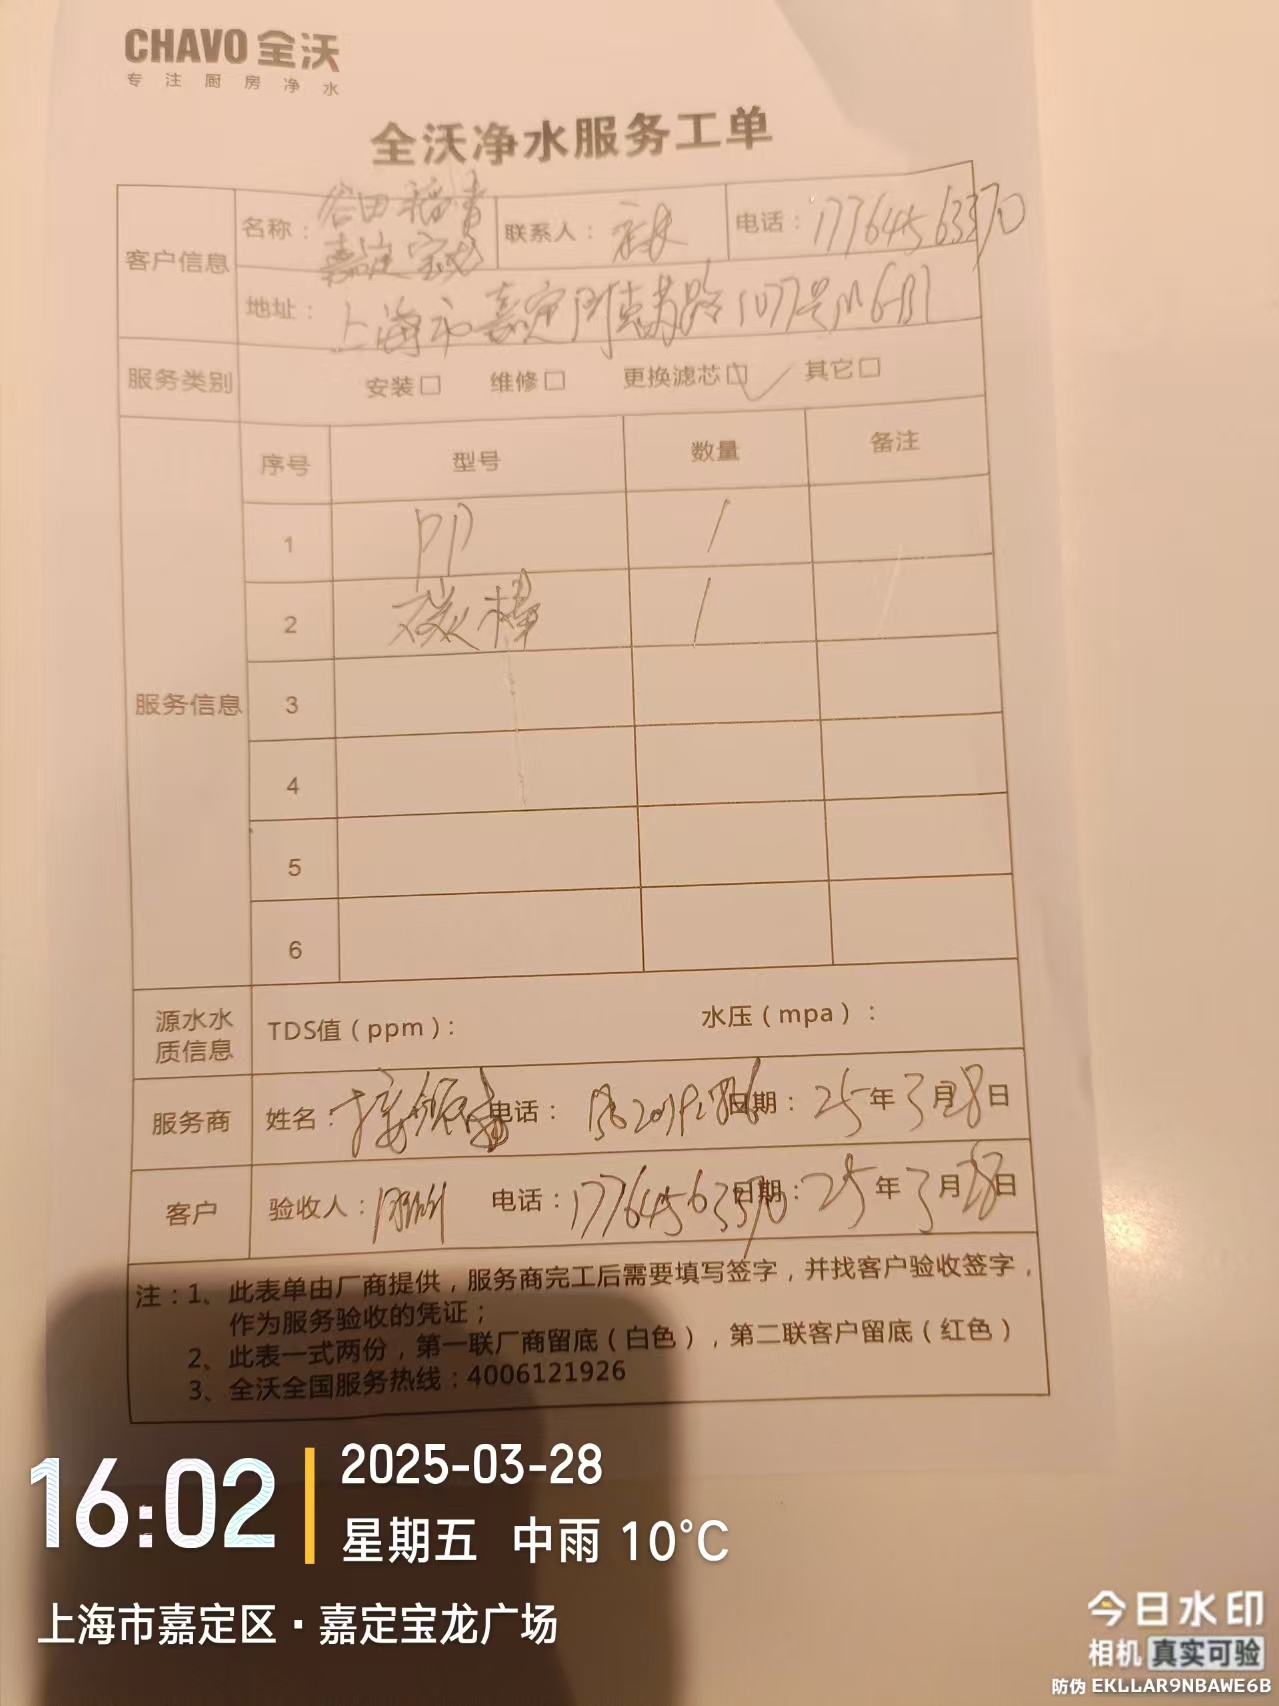 CHAVO 全沃
专注厨房净水
全沃净水服务工单
客户信息
名称：谷田稻香
嘉定宝龙
联系人：
电话：17764563370
地址：上海市嘉定
服务类别
安装□ 维修□ 更换滤芯□✓ 其它□
服务信息
序号 型号 数量 备注
1 PP 1
2 碳棒 1
3
4
5
6
源水水质信息
TDS值（ppm）： 水压（mpa）：
服务商 姓名： 电话： 日期：25年3月28日
客户 验收人： 电话：17764563370 日期：25年3月28日
注：1、此表单由厂商提供，服务商完工后需要填写签字，并找客户验收签字，
作为服务验收的凭证；
2、此表一式两份，第一联厂商留底（白色），第二联客户留底（红色）
3、全沃全国服务热线：4006121926
16:02
2025-03-28
星期五 中雨 10°C
上海市嘉定区·嘉定宝龙广场
今日水印
相机 真实可验
防伪 EKLLAR9NBAWE6B